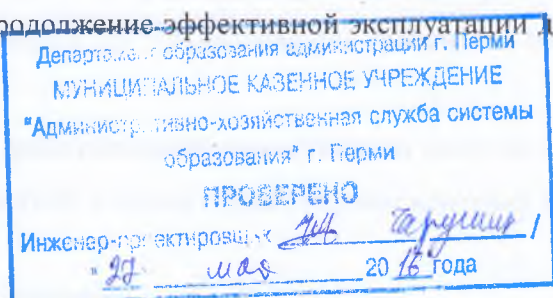 родолжение эффективной эксплуатации д
Департамент образования администрации г. Перми
МУНИЦИПАЛЬНОЕ КАЗЕННОЕ УЧРЕЖДЕНИЕ
"Административно-хозяйственная служба системы
образования" г. Перми
ПРОВЕРЕНО
Инженер-проектировщик /
"27" мая 2016 года